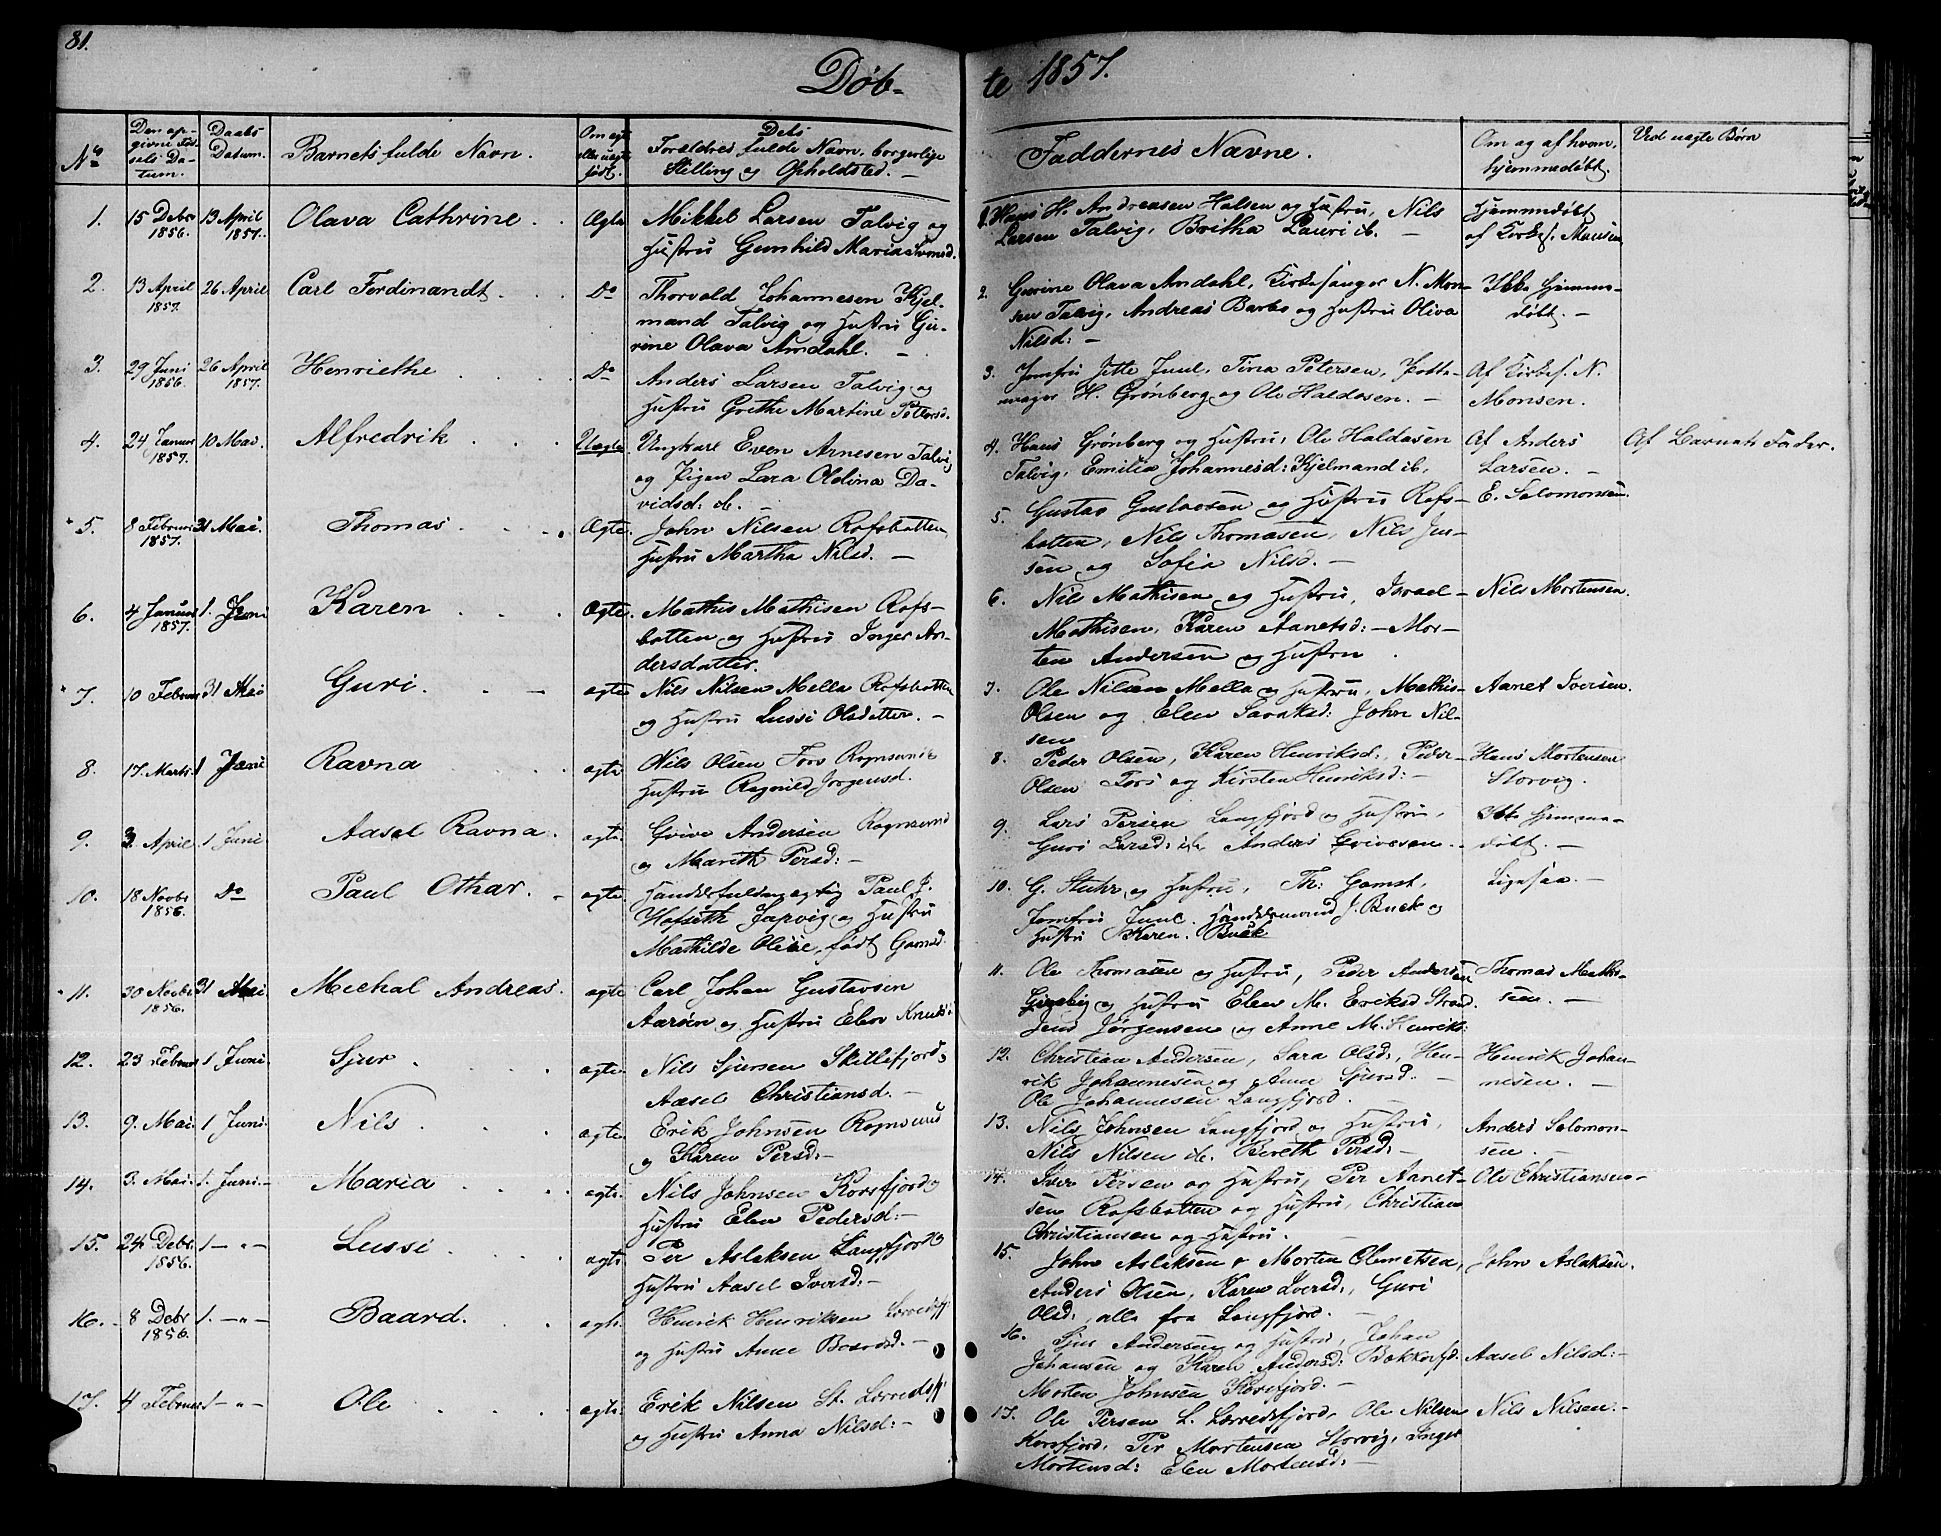 81.
Døb-
te 1857.
No
Den op-
givne Fød-
sels Da-
tum.
Daabs
Datum.
Barnets fulde Navn.
Om ægte
eller uægte
født.
Dets
Forældres fulde Navn, borgerlige
Stilling og Opholdsted. –
Faddernes Navne.
Om og af hvem
hjemmedøbt.
Ved uægte Børn
1. 15 Debr 1856. 13 April 1857. Olava Cathrine Ægte
Mikkel Larsen Talvig og
Hustru Gunhild Maria
1. Hans H. Andreasen Halsen og Hustru, Nils
Larsen Talvig, Britha Lauri ib. –
Hjemmedøbt
af Kirkes. Monsen
2. 13 April 1857. 26 April Carl Ferdinandt Do
Thorvald Johannesen Kjel-
mand Talvig og Hustru Gu-
rine Olava Amdahl. –
2. Gurine Olava Amdahl, Kirkesanger N. Mon-
sen Talvig, Andreas Barbo og Hustru Oliva
Nilsd: –
Ikke Hjemme-
døbt. –
3. 29 Juni 1856. 26 April 1857. Henriethe Do
Anders Larsen Talvig og
Hustru Grethe Martine Pettersd.
3. Jomfru Jette Juul, Tina Petersen, Potte-
mager H. Grønberg og Ole Haldosen. –
Af Kirkes. N.
Monsen.
4. 24 Januar 1857. 10 Mai. Alfredrik Uægte
Ungkarl Even Arnesen Talvig
og Pigen Lara Oldina Da-
vidsd. ib. –
4. Hans Grønberg og Hustru, Ole Haldosen
Talvig, Emilia Johannesd: Kjelmand ib.
Af Anders
Larsen. –
Af Barnets Fader.
5. 8 Februar 1857. 31 Mai. Thomas Ægte.
John Nilsen Rafsbotten,
Hustru Martha Nilsd. –
5. Gustav Gustavsen og Hustru Rafs-
botten, Nils Thomasen, Nils Jen-
sen og Sofia Nilsd. –
E. Salomonsen.
6. 4 Januar 1857. 1. Juni Karen Ægte.
Mathis Mathisen Rafs-
botten og Hustru Inger An-
dersdatter.
6. Nils Mathisen og Hustru, Israel
Mathisen, Karen Aanetsd: – Mor-
ten Andersen og Hustru.
Nils Mortensen.
7. 10 Februar 31 Mai Guri. ægte
Nils Nilsen Mella Rafsbotten
og Hustru Lussi Olsdatter. –
7. Ole Nilsen Mella og Hustru, Mathis
Olsen og Elen Savaksd: John Nil-
sen
Aanet Iversen.
8. 17. Marts 1 Juni Ravna ægte
Nils Olsen Fors Rognsund
Hustru Ragnild Jørgensd.
8. Peder Olsen, Karen Henriksd:, Peder
Olsen Fors og Kirsten Henriksd: –
Hans Mortensen
Storvig.
9. 3. April 1 Juni Aasel Ravna. ægte.
Qvive Andersen Rognsund
og Marith Persd: –
9. Lars Persen Langfjord og Hustru,
Guri Larsd: ib Anders Qvivesen.
Ikke Hjemme-
døbt. –
10. 18 Novbr 1856. Do Paul Othar. – ægte
Handelsfuldmægtig Paul J.
Hofseth Japvig og Hustru
Mathilde Olive, født Gamst.
10. G. Stuhr og Hustru, Th: Gamst,
Jomfru Juul, Handelsmand J. Buck og
Hustru Karen. Buck
Ligesaa. –
11. 30 Novbr 1856. 31 Mai. Mechal Andreas. ægte
Carl Johan Gustavsen
Aarøen og Hustru Elen Knuts
11. Ole Thomasen og Hustru, Peder Andersen
og Hustru Elen M. Eriksd Strand.
Jens Jørgensen og Anne M. Henriks:
Thomas Mathi-
sen. –
12. 23 Februar 1. Juni. Sjur. ægte.
Nils Sjursen Skillefjord og
Aasel Christiansd. –
12. Christian Andersen, Sara Olsd:, Hen-
rik Johannesen og Anne Sjursd. –
Ole Johannesen Langfjord. –
Henrik Johan-
nesen. –
13. 9. Mai. 1 Juni. Nils. ægte.
Erik Johnsen Rognsund
og Karen Persd: –
13. Nils Johnsen Langfjord og Hustru,
Nils Nilsen ib. Bereth Persd: –
Anders Salomon-
sen. –
14. 3. Mai. 1. Juni. – Maria ægte.
Nils Johnsen Korsfjord og
Hustru Elen Pedersd: –
14. Iver Persen og Hustru, Per Aanet-
sen Rafsbotten og Hustru, Christian
Christiansen og Hustru. –
Ole Christiansen –
15. 24 Debr. 1856. 1 – „ – Lussi ægte
Per Aslaksen Langfjord og
Hustru Aasel Iversd: –
15. John Aslaksen & Morten Clemetsen,
Anders Olsen, Karen Iversd:, Guri
Olsd:, alle fra Langfjord. –
John Aslaksen.
16. – 8 Debr 1856. 1. – „ – Baard. ægte.
Henrik Henriksen
og Hustru Anne Baardsd. –
16. Sjur Andersen og Hustru, Johan
Johansen og Karen Andersd: Bekkarfjd:
Morten Johnsen Korsfjord. –
Aasel Nilsd: –
17. 4 Februar 1 – „ – Ole ægte.
Erik Nilsen St. Lerresfj:
og Hustru Anna Nilsd: –
17. Ole Persen L. Lerresfjord, Ole Nilsen
Korsfjord, Per Mortensen Storvig, Inger
Mortensd: Elen Mortensd: –
Nils Nilsen. –